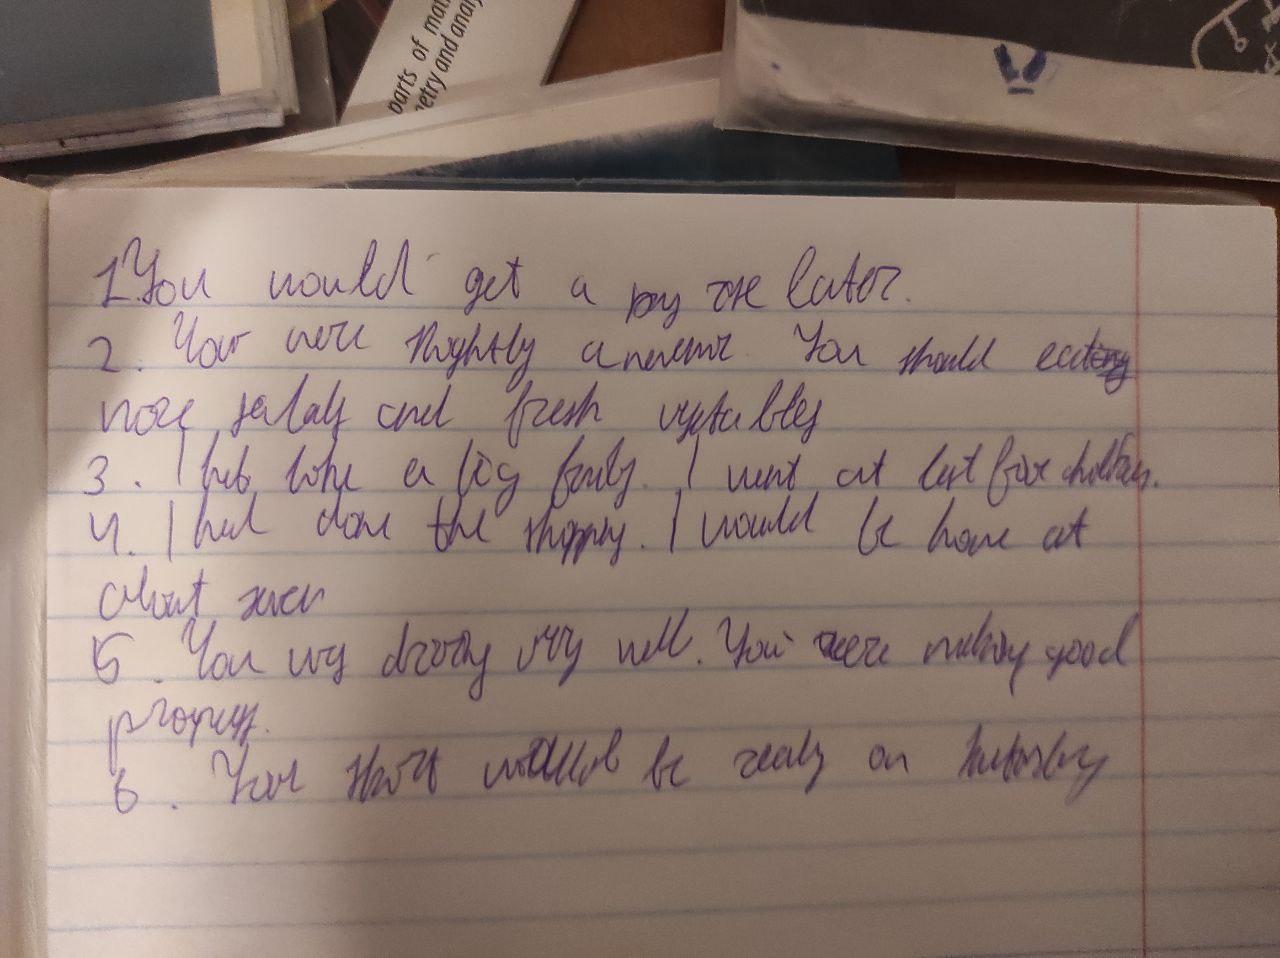 parts of mat
etry and analy
1. You would get a pay rise later.
2. Your were slightly You should eat
more salads and fresh vegetables
3. I a big family. I want at lest five
4. I had done the shopping. I would be home at
about seven
5. You very well. You were making good
progress.
6. Your shirt would be ready on